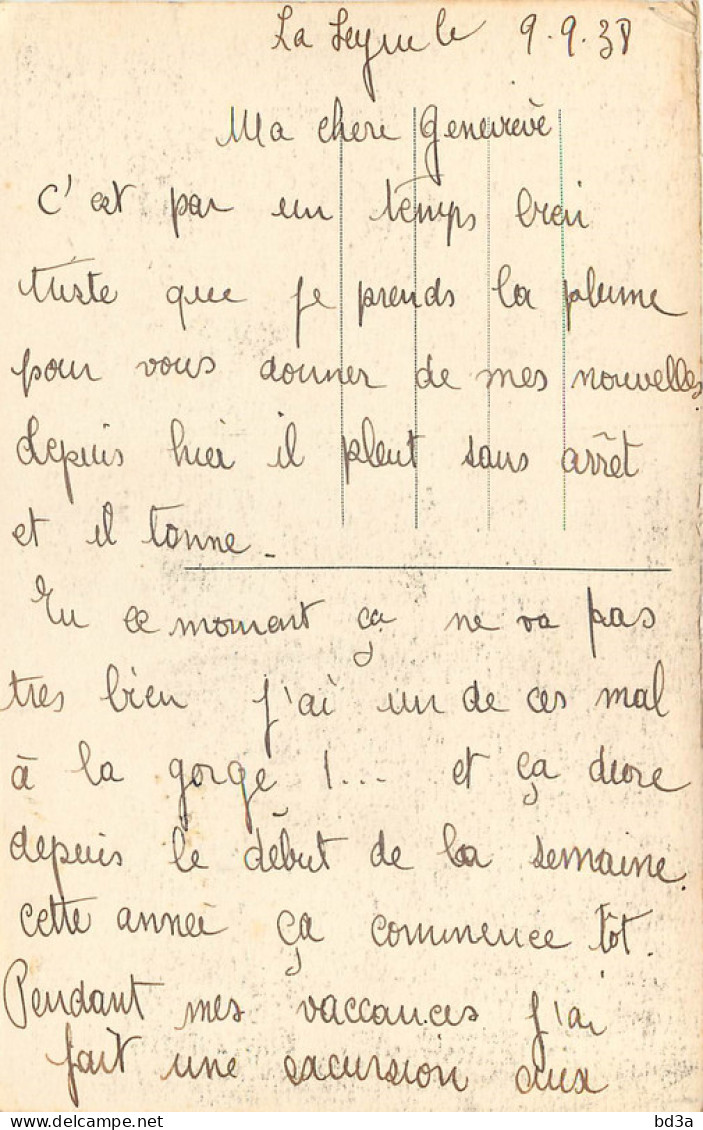 La Seyne le 9.9.38
Ma chere Geneviève
C'est par un temps bien
triste que je prends la plume
pour vous donner de mes nouvelles
depuis hier il pleut sans arrêt
et il tonne.
En ce moment ça ne va pas
tres bien j'ai un de ces mal
à la gorge !... et ça dure
depuis le début de la semaine.
cette année ça commence tôt.
Pendant mes vaccances j'ai
fait une excursion aux
delcampe.net
bd3a